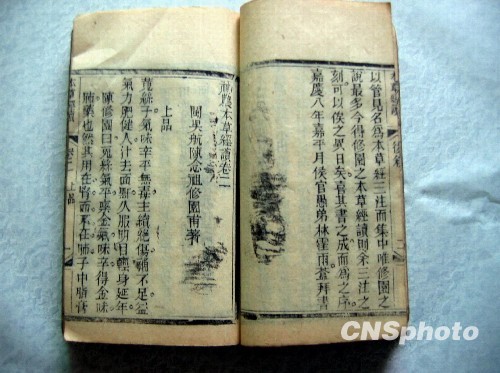 以管見名為本草經三注而集中唯修園之
說最多今得修園之本草經讀則余三注之
刻可以俟之異日矣喜其書之成而為之序
嘉慶八年嘉平月侯官愚弟林霔雨蒼拜書
神農本草經讀卷二
閩吳航陳念祖修園甫著
上品
菟絲子氣味辛平無毒主續絕傷補不足益
氣力肥健人汁去面䵟久服明目輕身延年
陳修園曰菟絲氣平稟金氣味辛得金味
肺藥也然其用在腎而不在肺子中脂膏
上品
CNSphoto